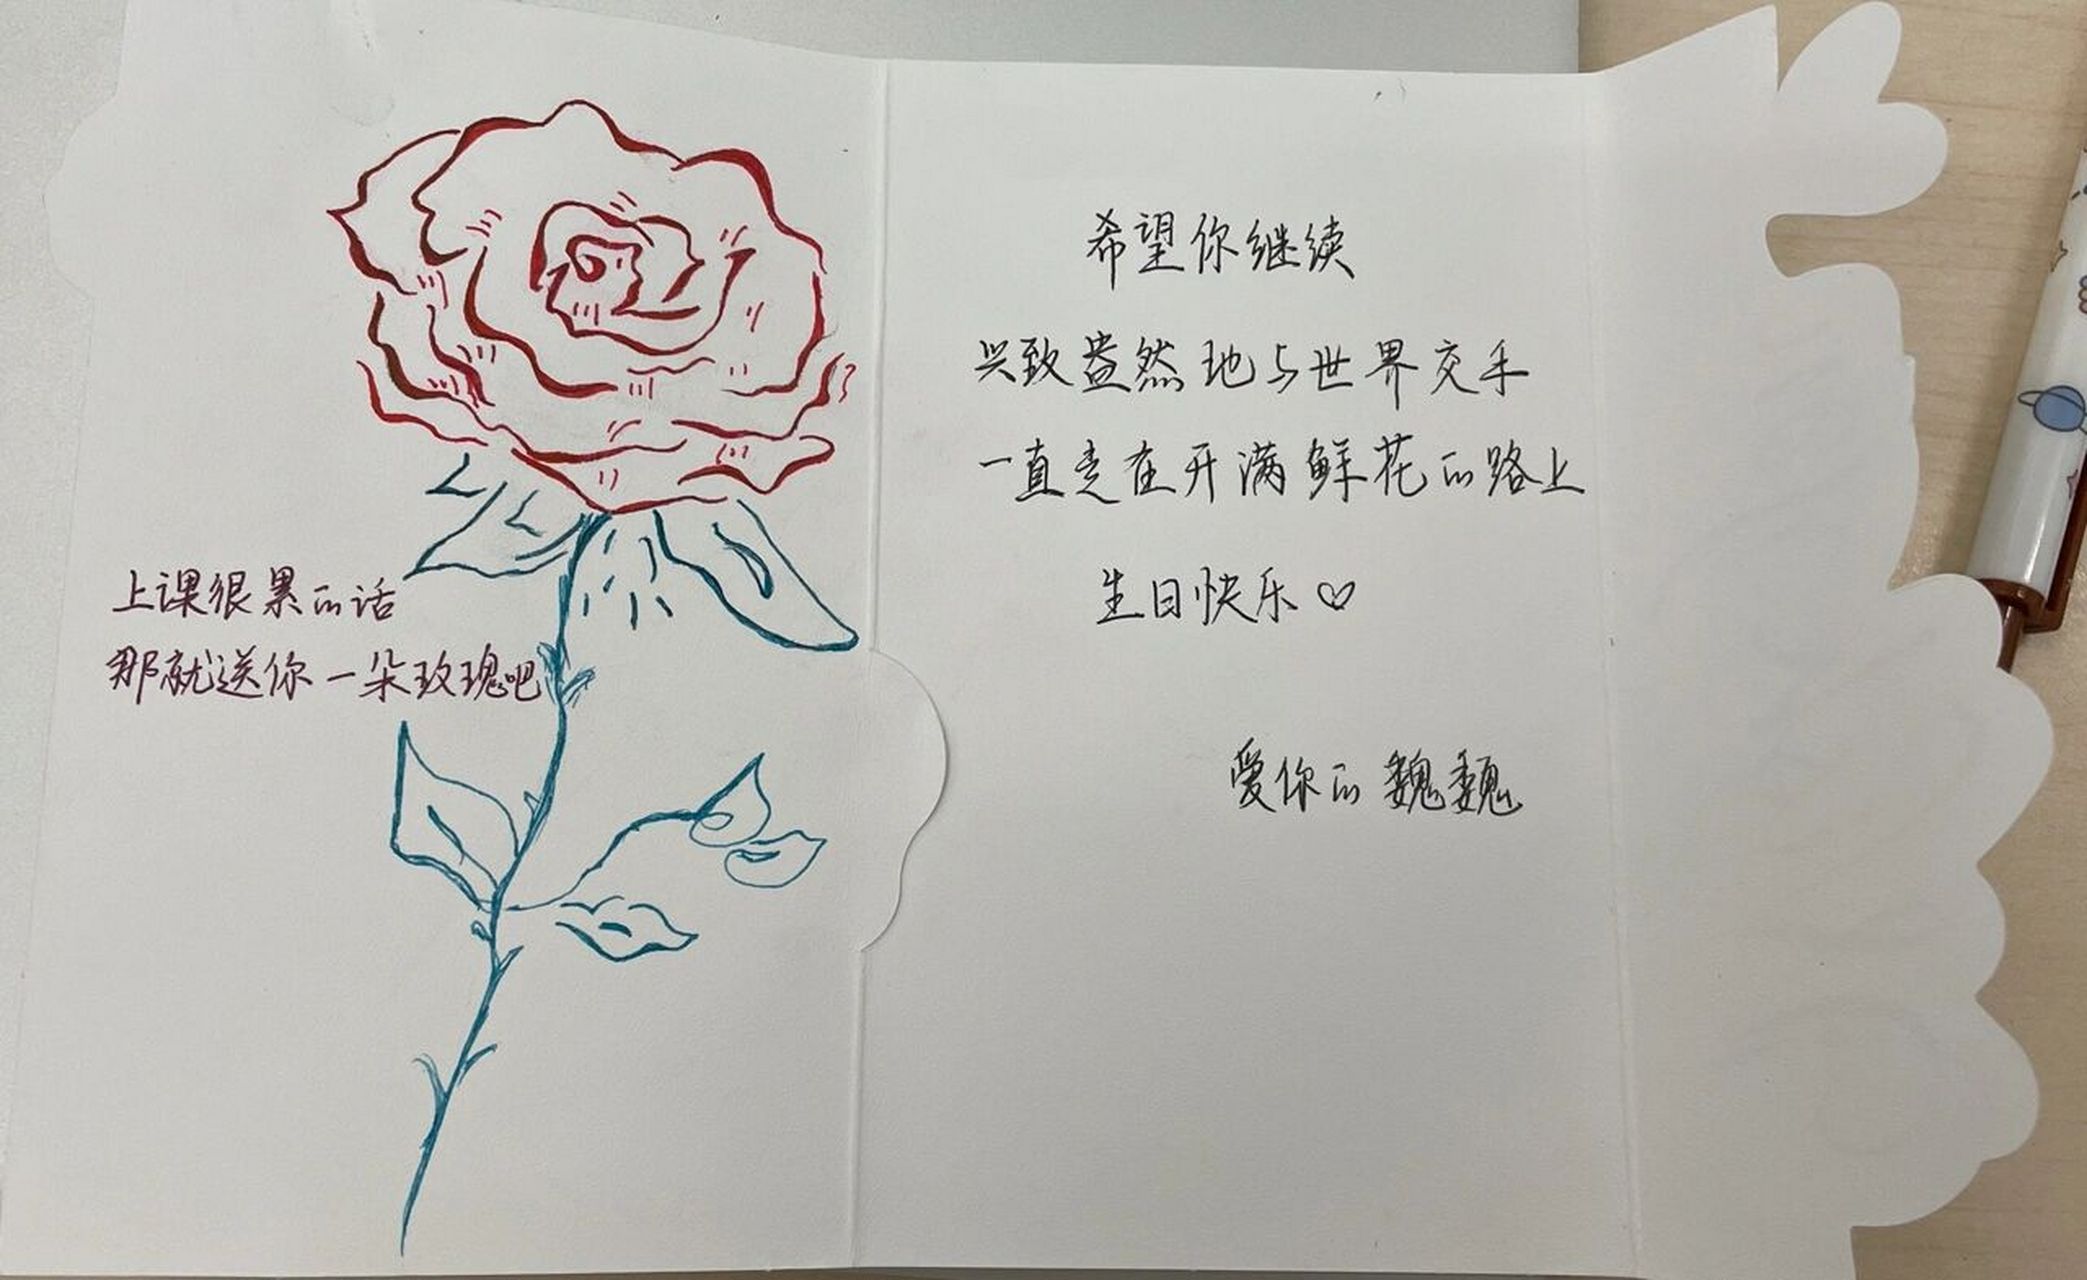 上课很累的话
那就送你一朵玫瑰吧
希望你继续
兴致盎然地与世界交手
一直走在开满鲜花的路上
生日快乐♡
爱你的魏魏